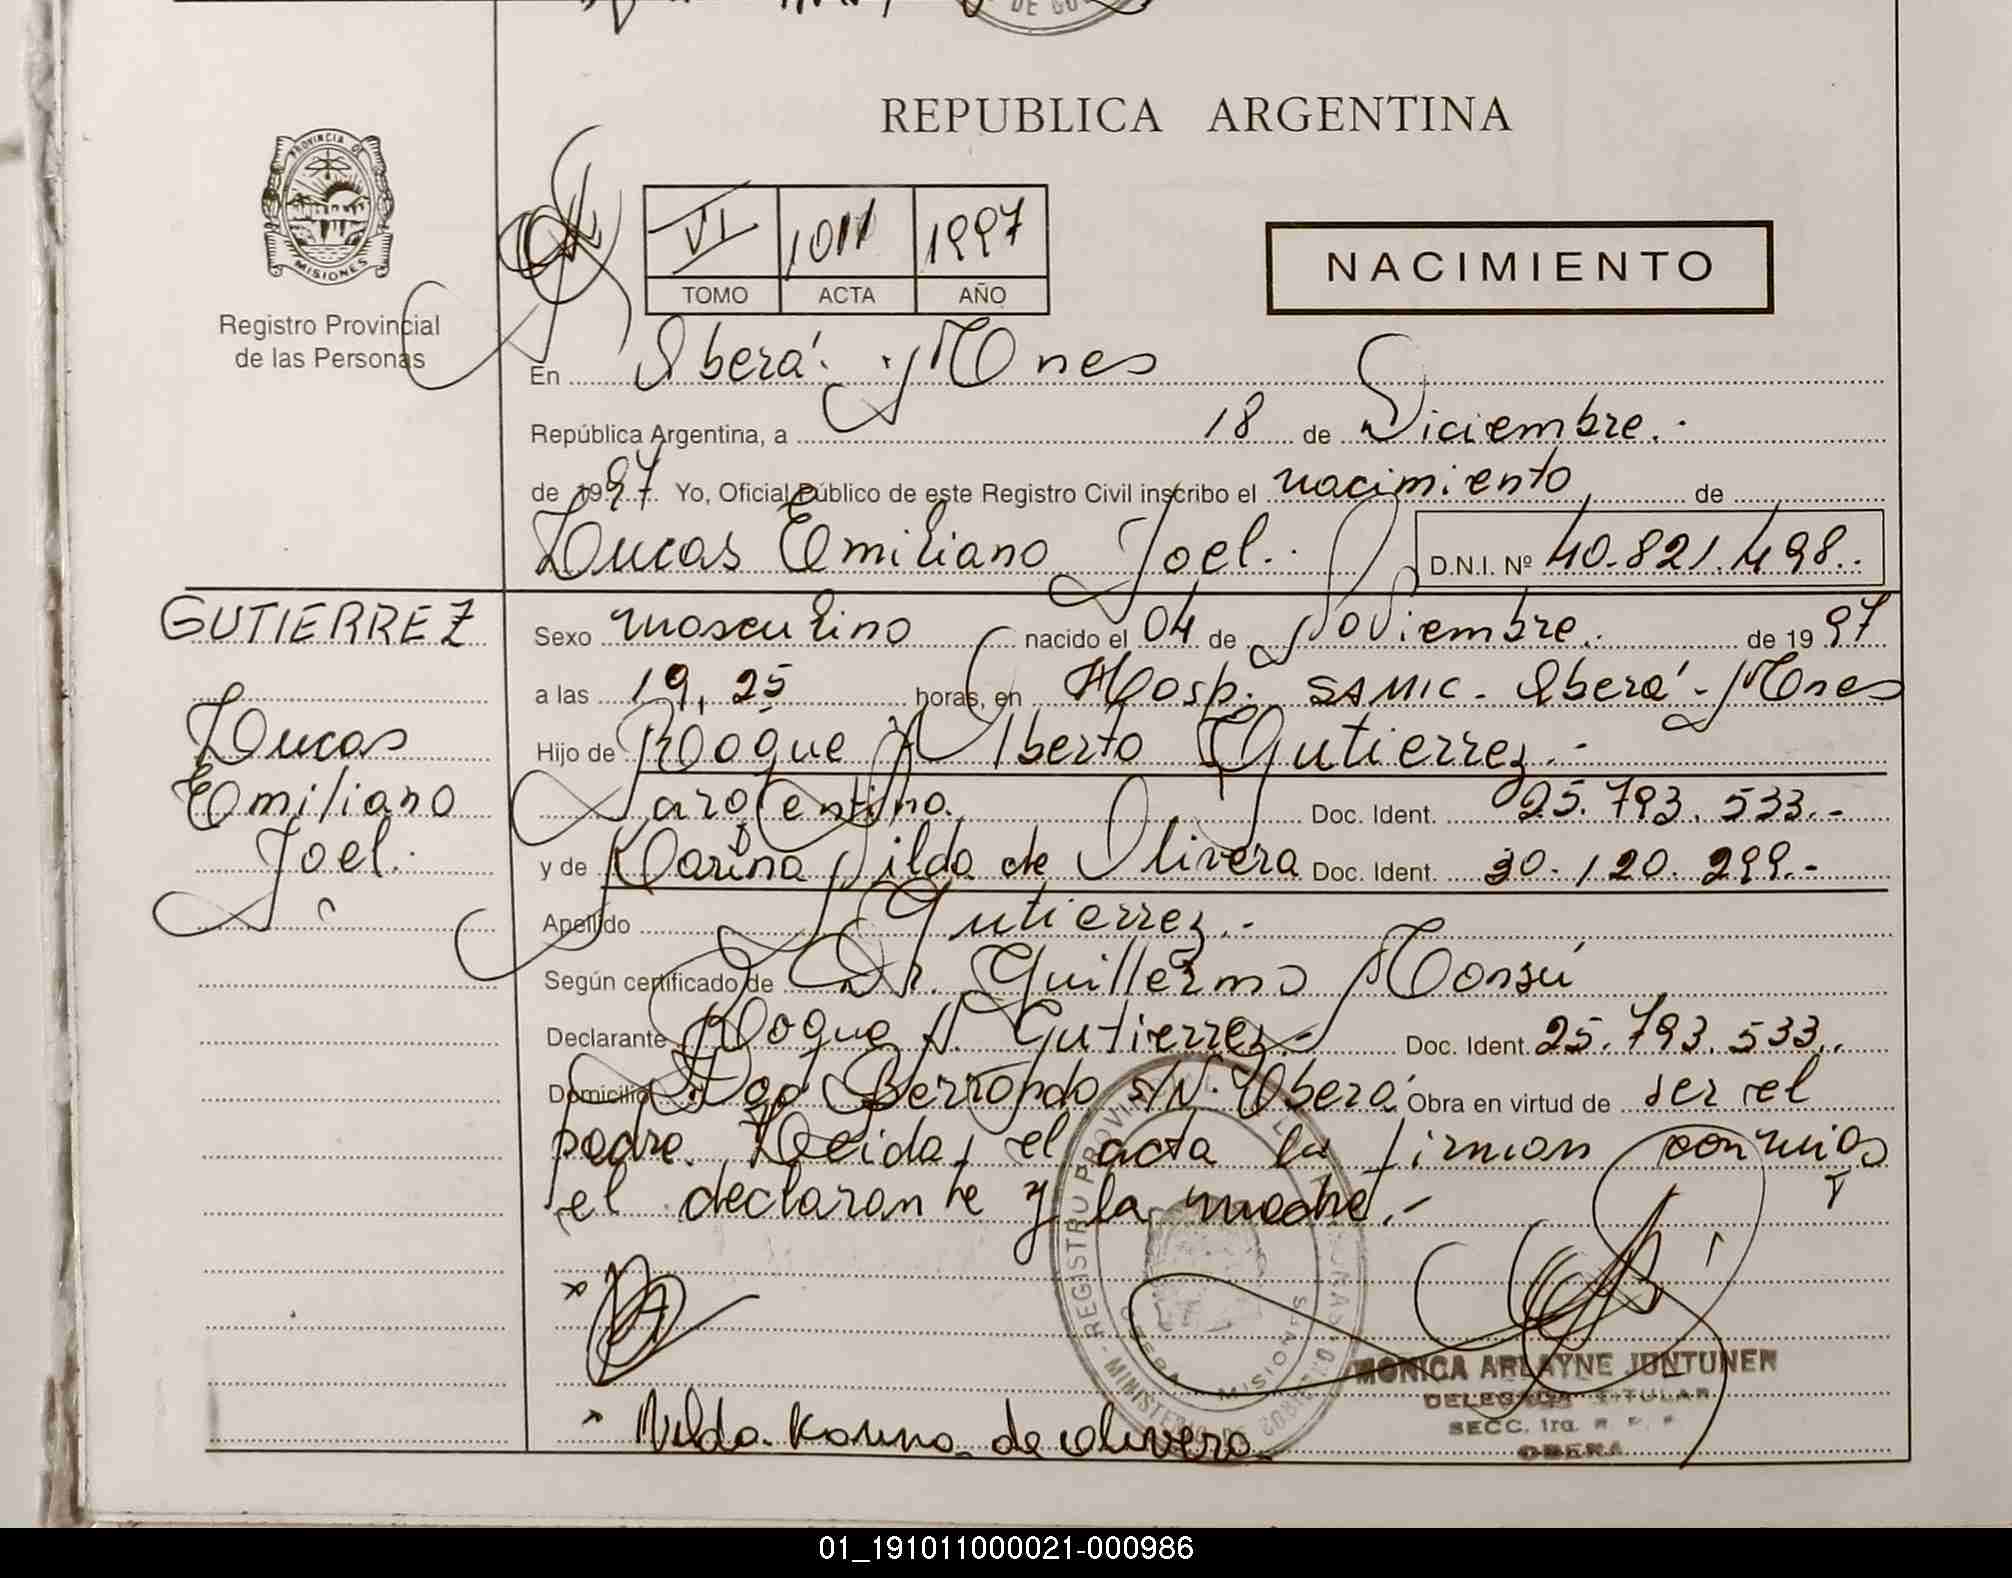 REPUBLICA ARGENTINA
PROVINCIA DE
MISIONES
Registro Provincial
de las Personas
VI 1011 1997
TOMO ACTA AÑO
NACIMIENTO
En Oberá. Mnes
República Argentina, a 18 de Diciembre.-
de 1997. Yo, Oficial Público de este Registro Civil inscribo el nacimiento de
Lucas Emiliano Joel.- D.N.I. Nº 40.821.498.-
GUTIERREZ
Lucas
Emiliano
Joel.-
Sexo masculino nacido el 04 de Noviembre.- de 1997
a las 19,25 horas, en Hosp. SAMIC - Oberá - Mnes
Hijo de Roque Alberto Gutierrez.-
argentino Doc. Ident. 25.793.533.-
y de Karina Nilda de Olivera Doc. Ident. 30.120.299.-
Apellido Gutierrez.-
Según certificado de Dr. Guillermo Monsú
Declarante Roque A. Gutierrez.- Doc. Ident. 25.793.533.-
Domicilio Bº Berrondo s/N. Oberá Obra en virtud de ser el
padre. Leida el acta la firman conmigo
el declarante y la madre.-
x
x Nilda Karina de olivera
REGISTRO PROVINCIAL DE LAS PERSONAS
MINISTERIO DE GOBIERNO
OBERA MISIONES
MONICA ARLAYNE JUNTUNEN
DELEGADA TITULAR
SECC. 1ra. R. P. P.
OBERA
01_191011000021-000986